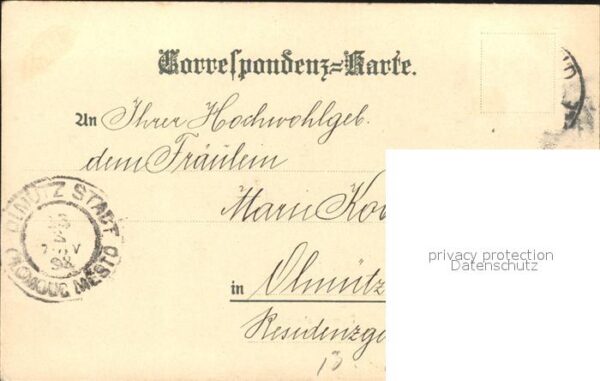 Correspondenz=Karte.
An Ihrer Hochwohlgeb.
dem Fräulein
Marie
in Olmütz
OLMÜTZ STADT
OLOMOUC MĚSTO
privacy protection
Datenschutz